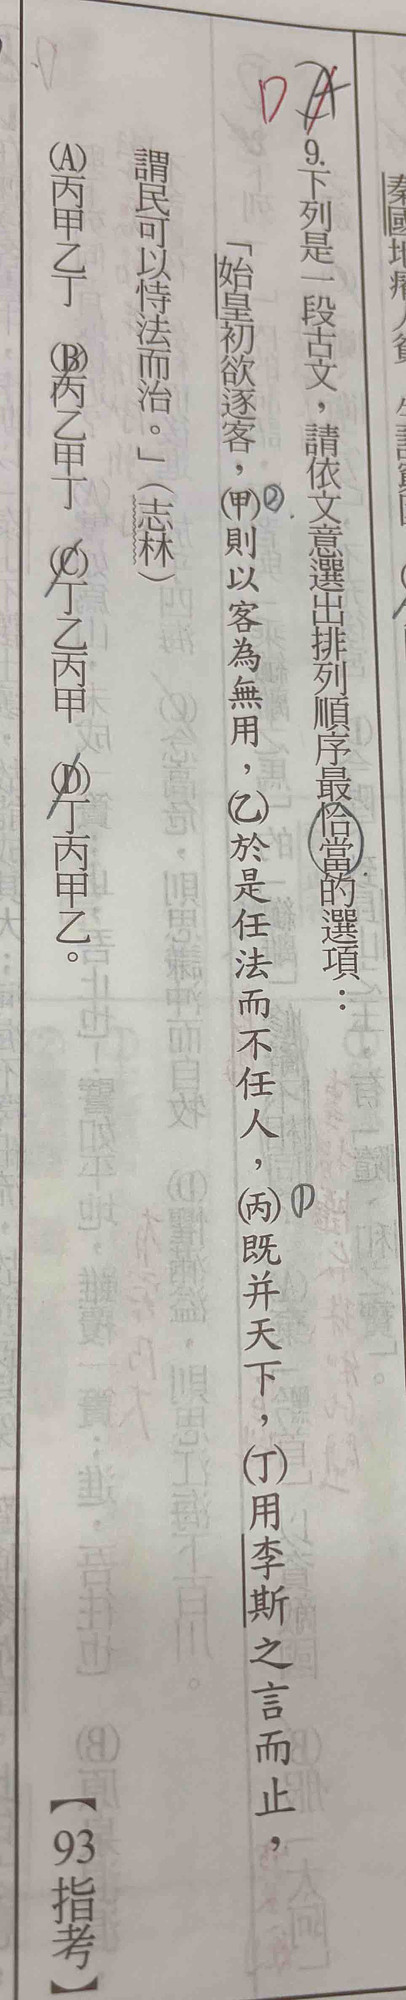 D A
9.下列是一段古文，請依文意選出排列順序最恰當的選項：
「始皇初欲逐客，(甲)②則以客為無用，(乙)於是任法而不任人，(丙)①既并天下，(丁)用李斯之言而止，
謂民可以恃法而治。」（志林）
(A)丙甲乙丁　(B)丙乙甲丁　(C)丁乙丙甲　(D)丁丙甲乙。【93指考】